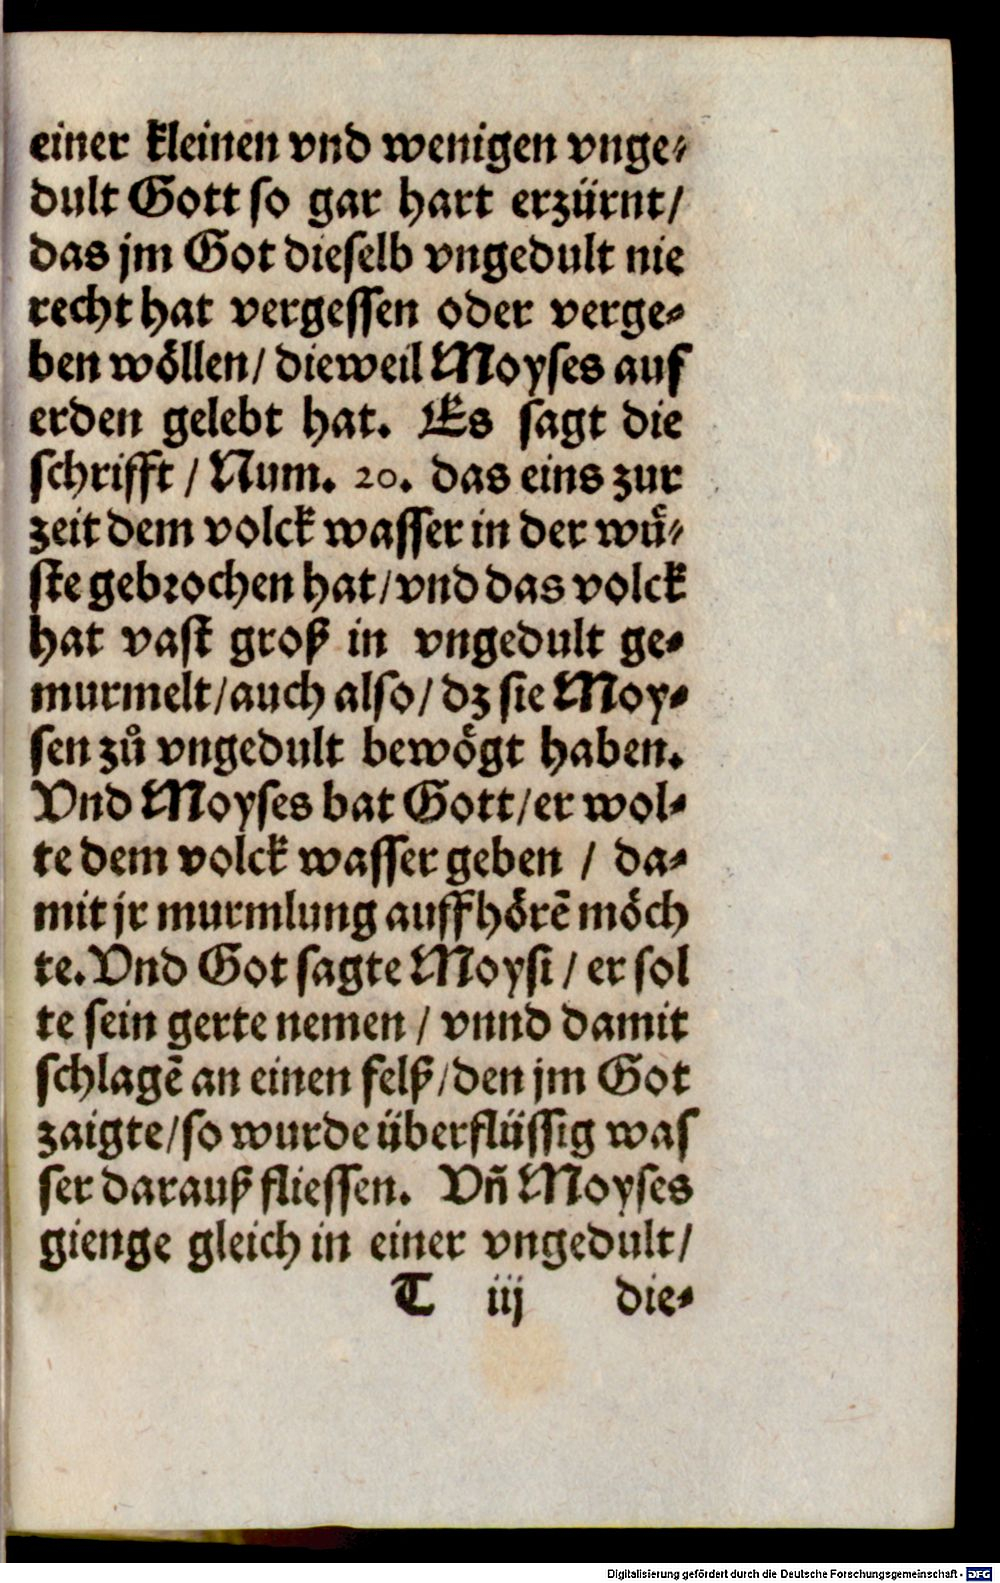 einer kleinen vnd wenigen vnge-
dult Gott so gar hart erzürnt/
das jm Got dieselb vngedult nie
recht hat vergessen oder verge-
ben wöllen/ dieweil Moyses auf
erden gelebt hat. Es sagt die
schrifft / Num. 20. das eins zur
zeit dem volck wasser in der wuͤ-
ste gebrochen hat/ vnd das volck
hat vast groß in vngedult ge-
murmelt/ auch also/ dz sie Moy-
sen zuͦ vngedult bewoͤgt haben.
Vnd Moyses bat Gott/ er wol-
te dem volck wasser geben / da-
mit jr murmlung auffhoͤrē moͤch
te. Vnd Got sagte Moysi / er sol
te sein gerte nemen / vnnd damit
schlagē an einen felß/ den jm Got
zaigte/ so wurde überflüssig was
ser darauß fliessen. Vñ Moyses
gienge gleich in einer vngedult/
T iij die-
Digitalisierung gefördert durch die Deutsche Forschungsgemeinschaft - DFG